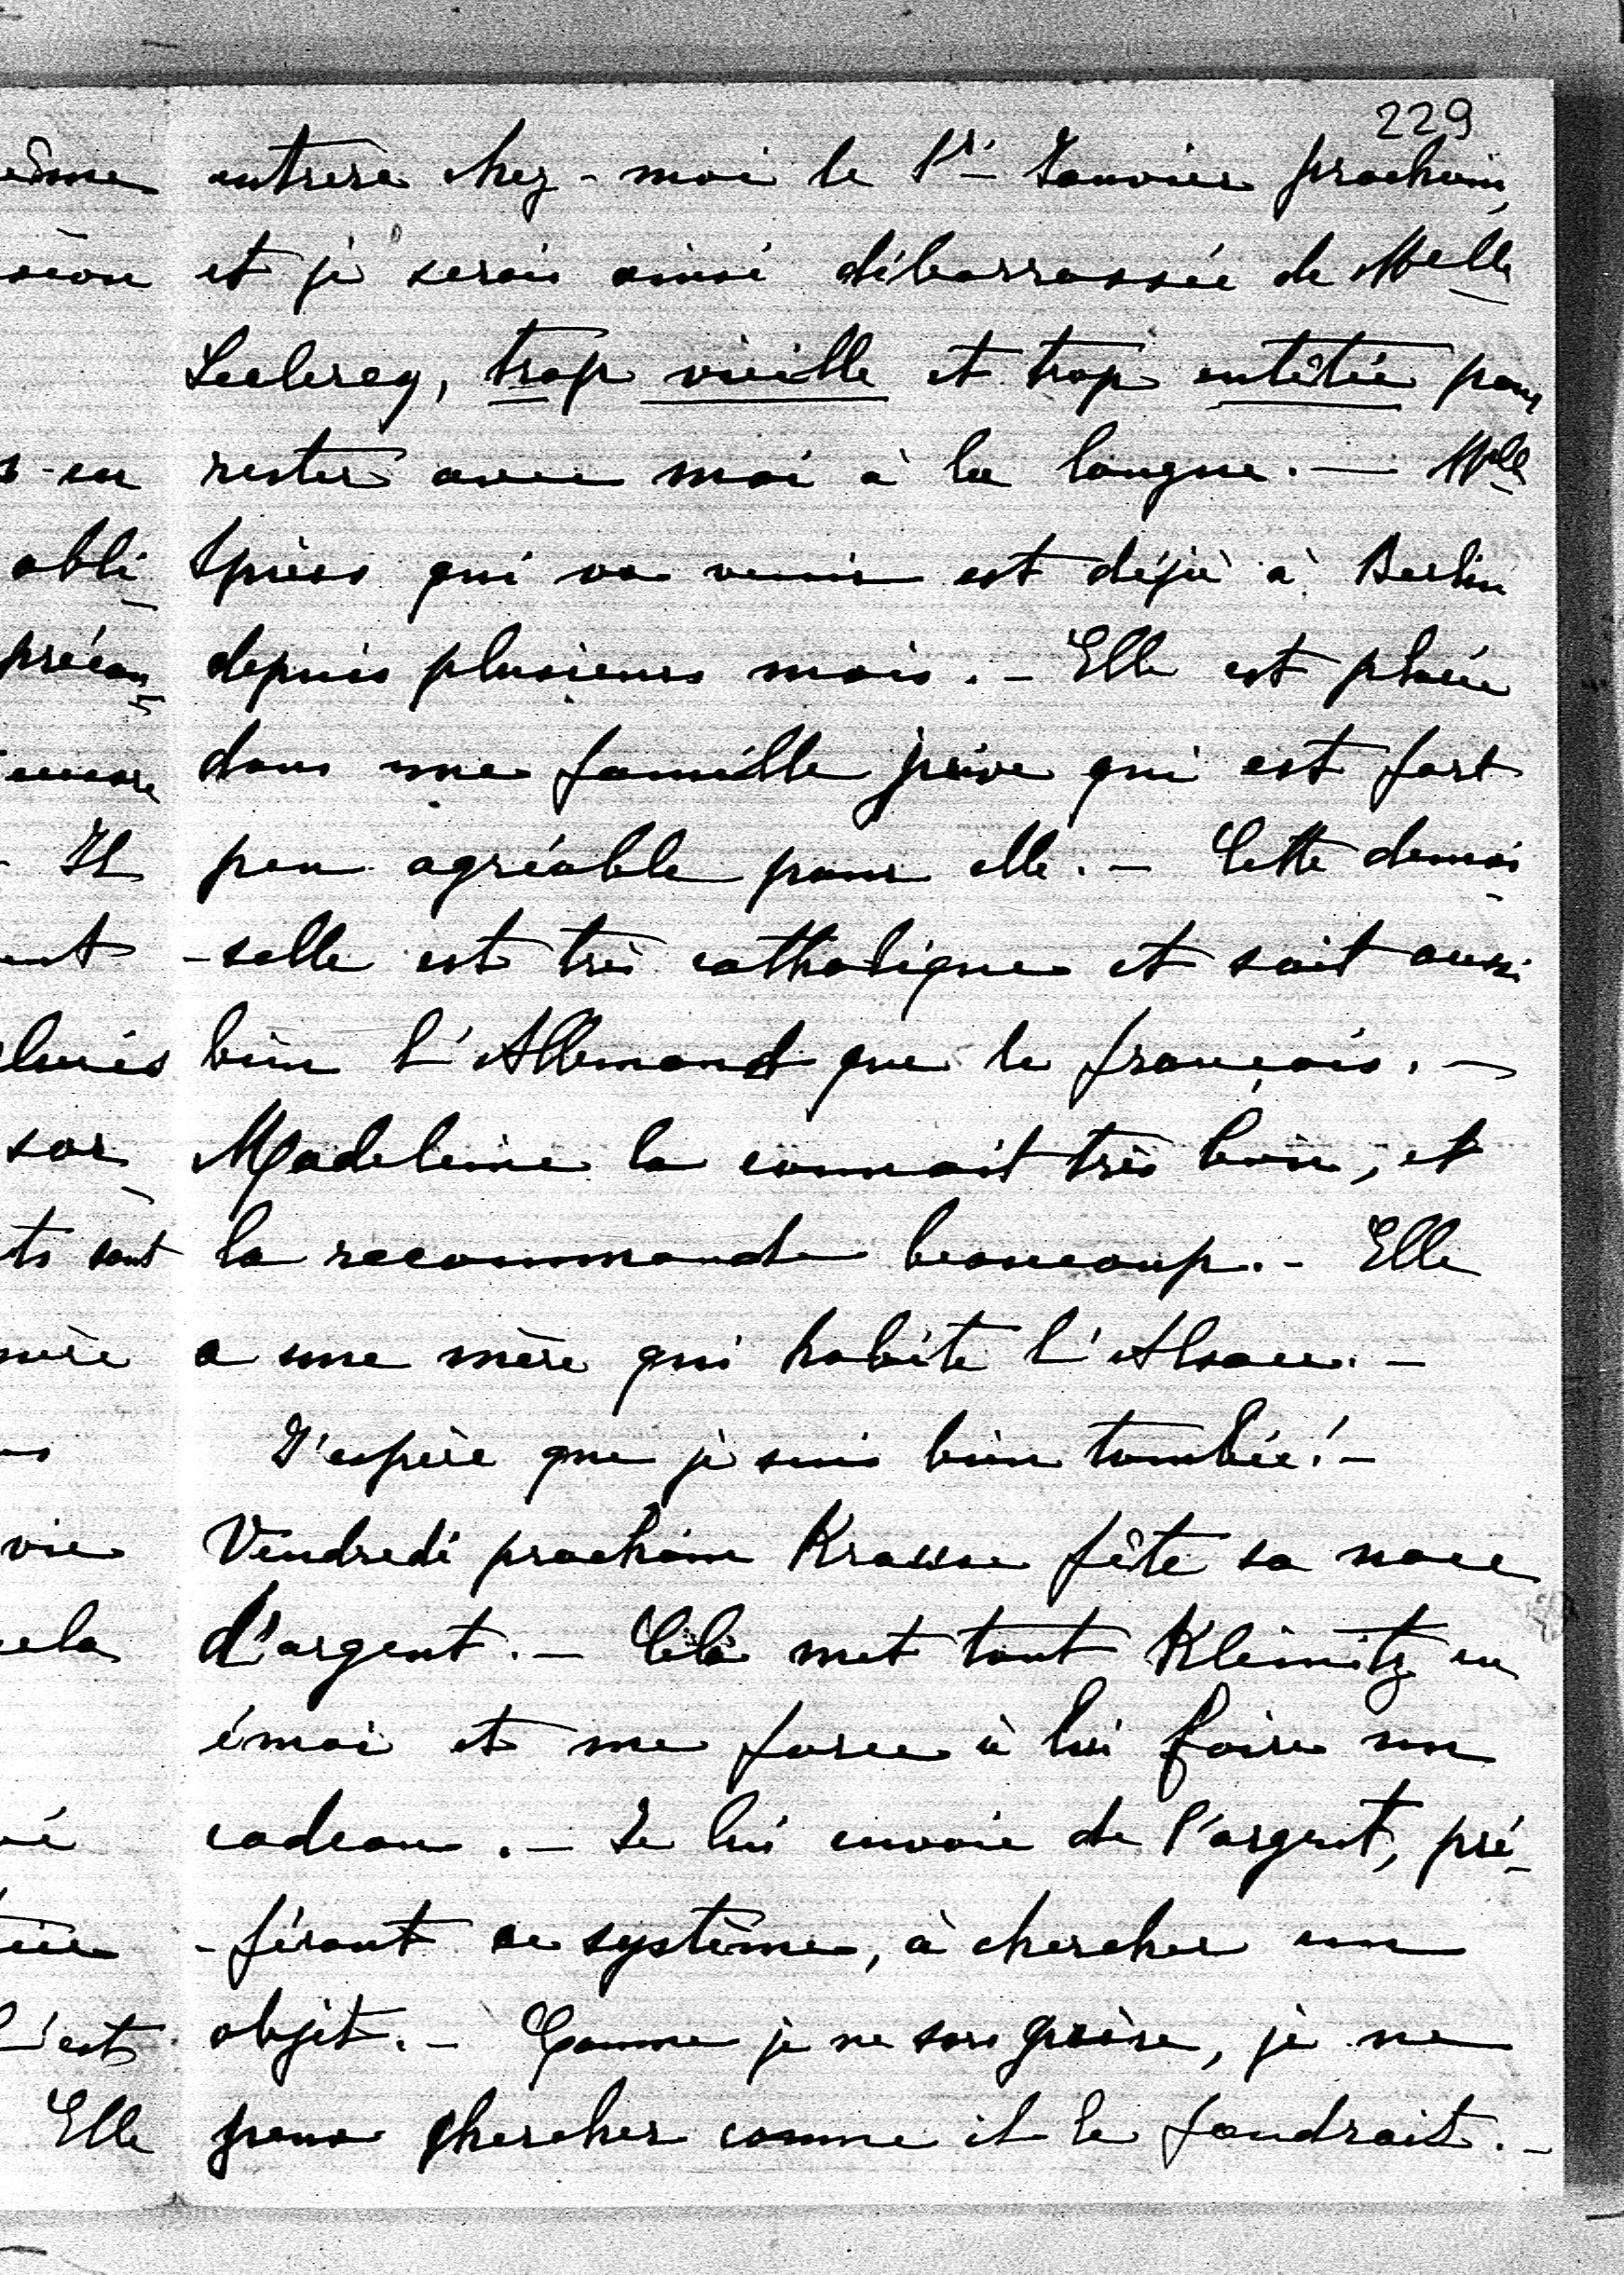 229
entrera chez-moi le 1r Janvier prochain,
et je serais ainsi débarrassée de Melle
Leclercq, trop vieille et trop entêtée pour
rester avec moi à la longue. — Melle
Spiess qui va venir est déjà à Berlin
depuis plusieurs mois. — Elle est placée
dans une famille juive qui est fort
peu agréable pour elle. — Cette demoi-
-selle est très catholique et sait aussi
bien l'Allemand que le français. —
Madeleine la connait très bien, et
la recommande beaucoup. — Elle
a une mère qui habite l'Alsace. —
J'espère que je suis bien tombée! —
Vendredi prochain Krause fête sa noce
d'argent. — Celà met tout Kleinitz en
émoi et me force à lui faire un
cadeau. — Je lui envoie de l'argent, pré-
-férant ce système, à chercher un
objet. — Comme je ne sors guère, je ne
peux chercher comme il le faudrait. —